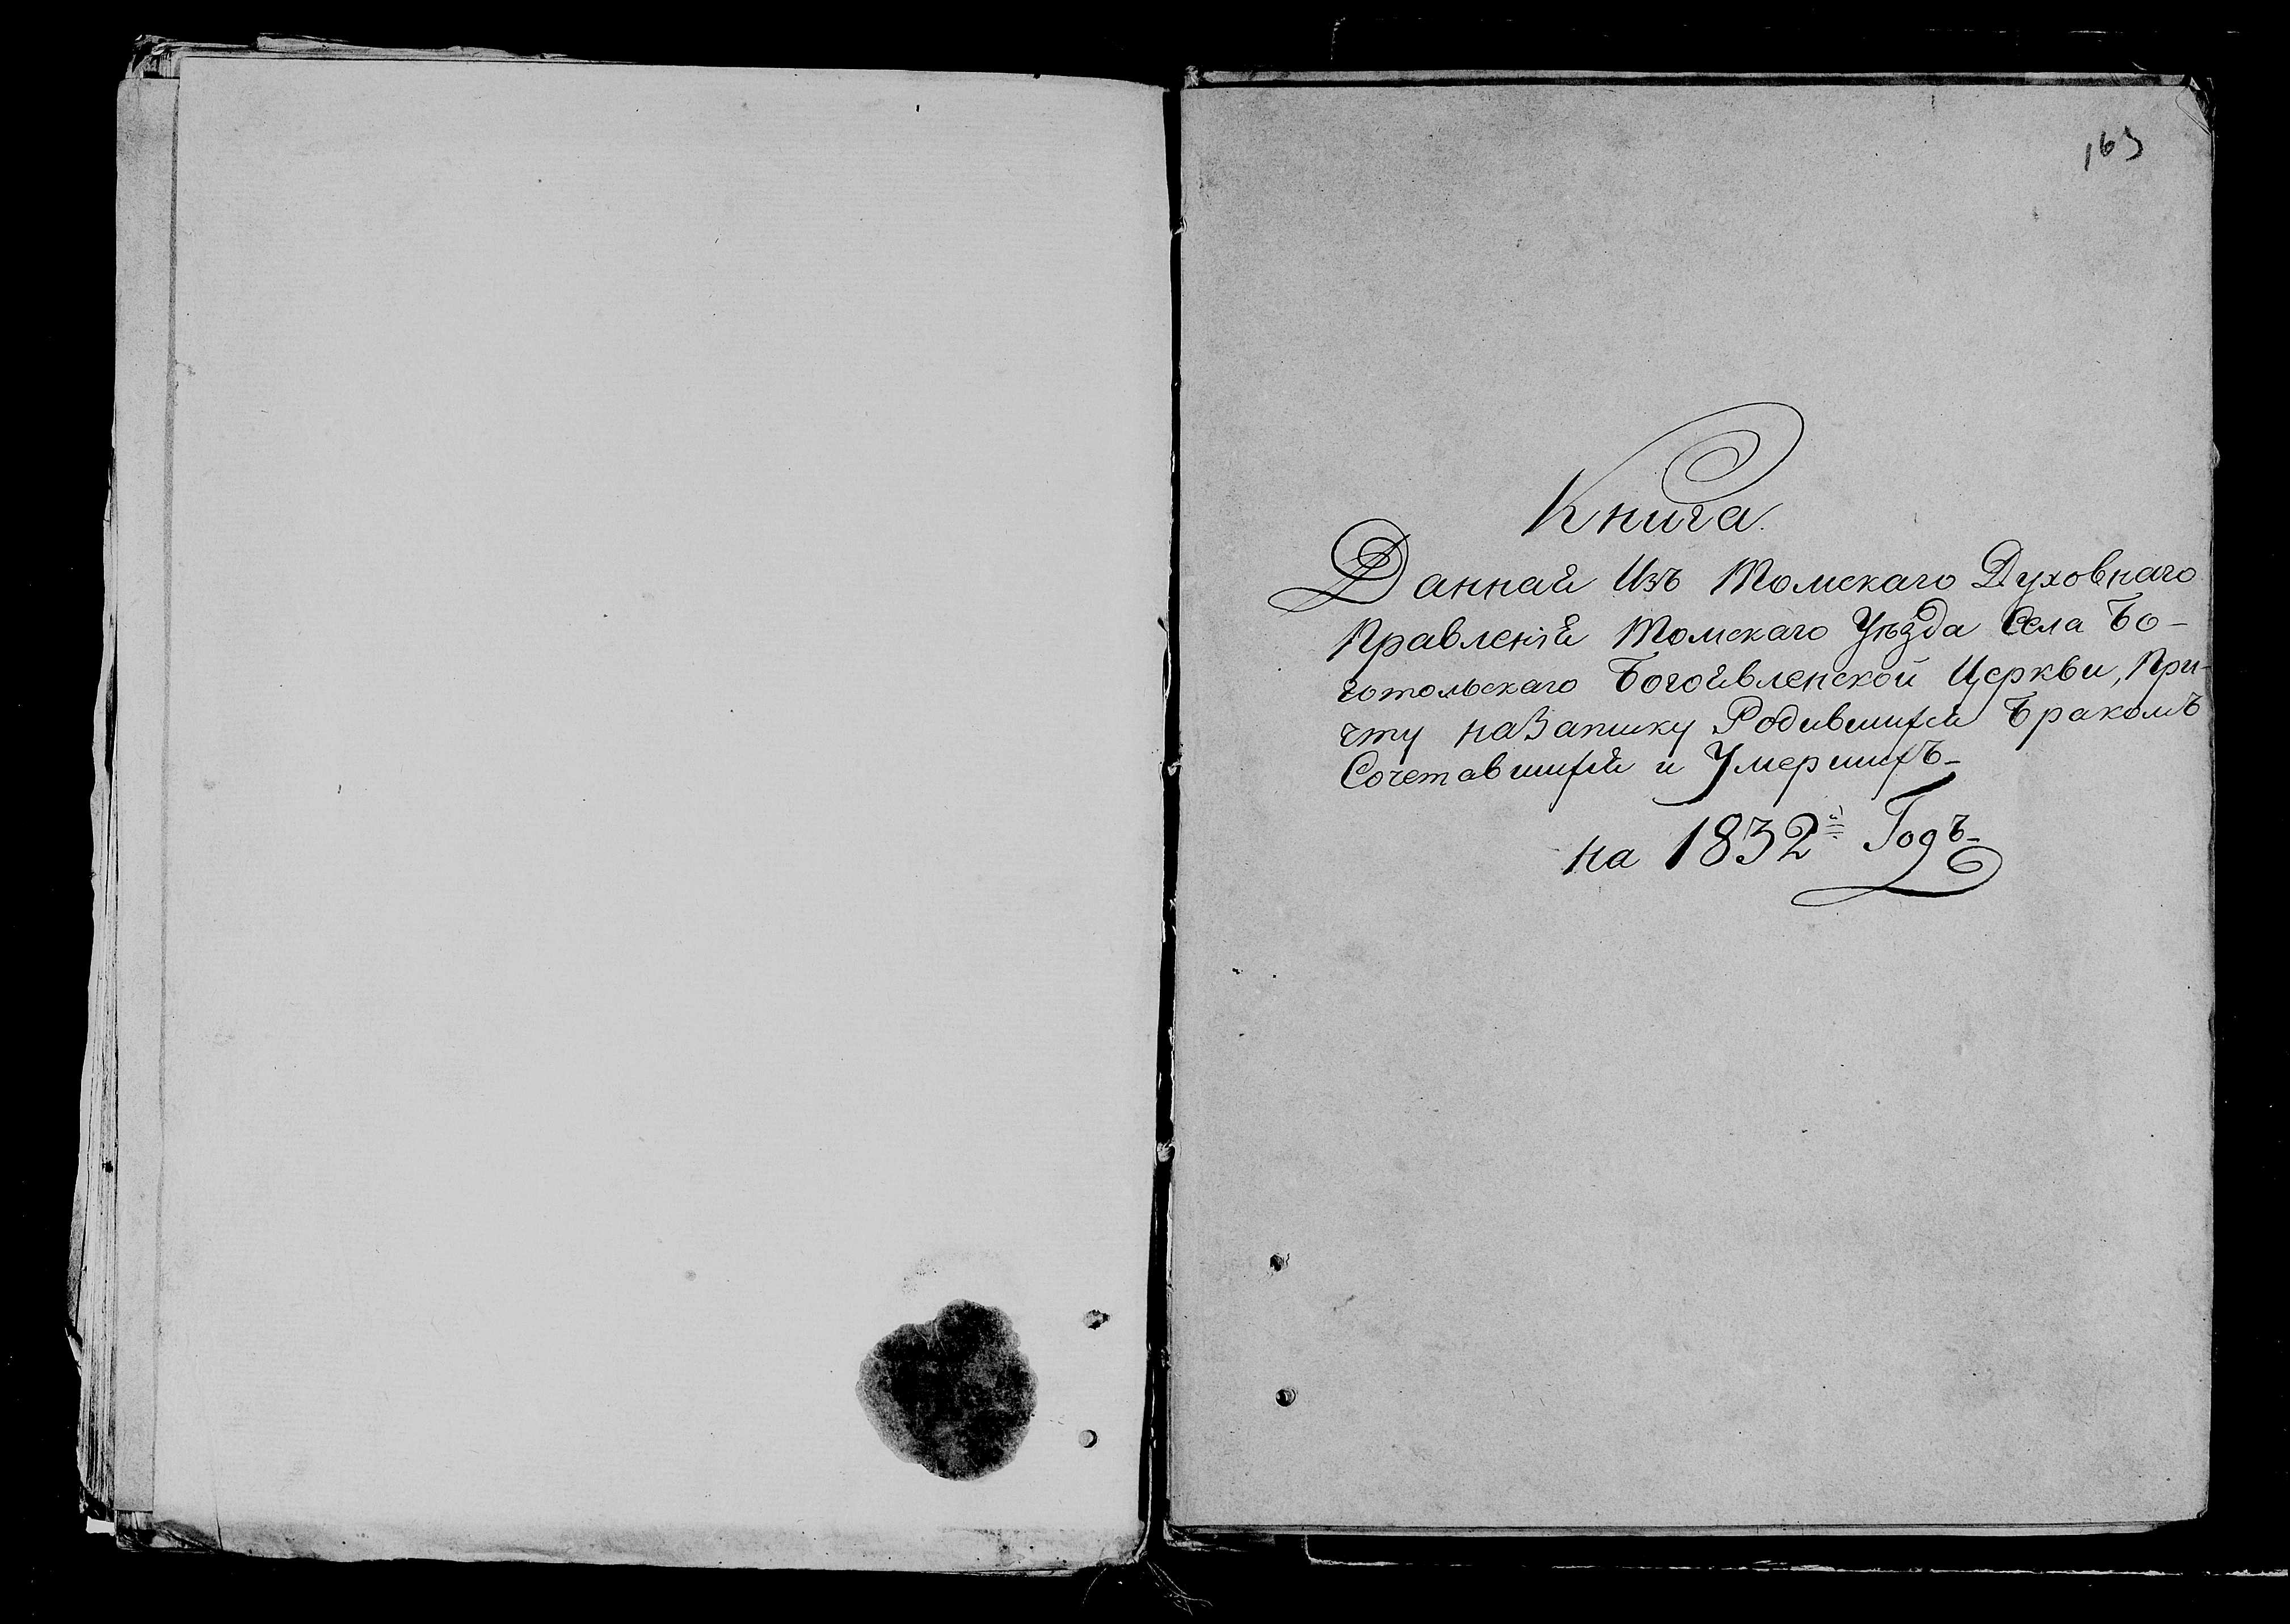 163
Книга
Данная Изъ Томскаго Духовнаго
Правленія Томскаго Уѣзда Села Бо-
готольскаго Богоявленской Церкви, При-
чту на Записку Родившихся Бракомъ
Сочетавшихся и Умершихъ-
на 1832й Годъ-